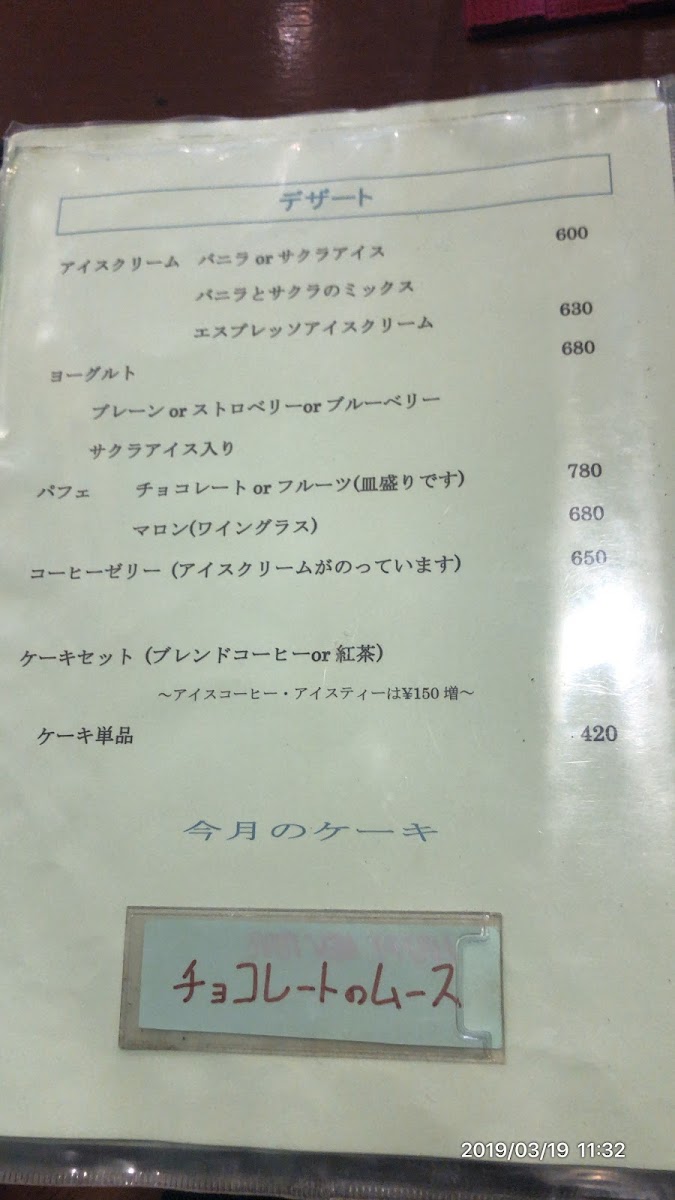 デザート
アイスクリーム バニラ or サクラアイス 600
バニラとサクラのミックス
エスプレッソアイスクリーム 630
ヨーグルト 680
プレーン or ストロベリーor ブルーベリー
サクラアイス入り
パフェ チョコレート or フルーツ(皿盛りです) 780
マロン(ワイングラス) 680
コーヒーゼリー (アイスクリームがのっています) 650
ケーキセット (ブレンドコーヒーor 紅茶)
～アイスコーヒー・アイスティーは¥150 増～
ケーキ単品 420
今月のケーキ
チョコレートのムース
2019/03/19 11:32